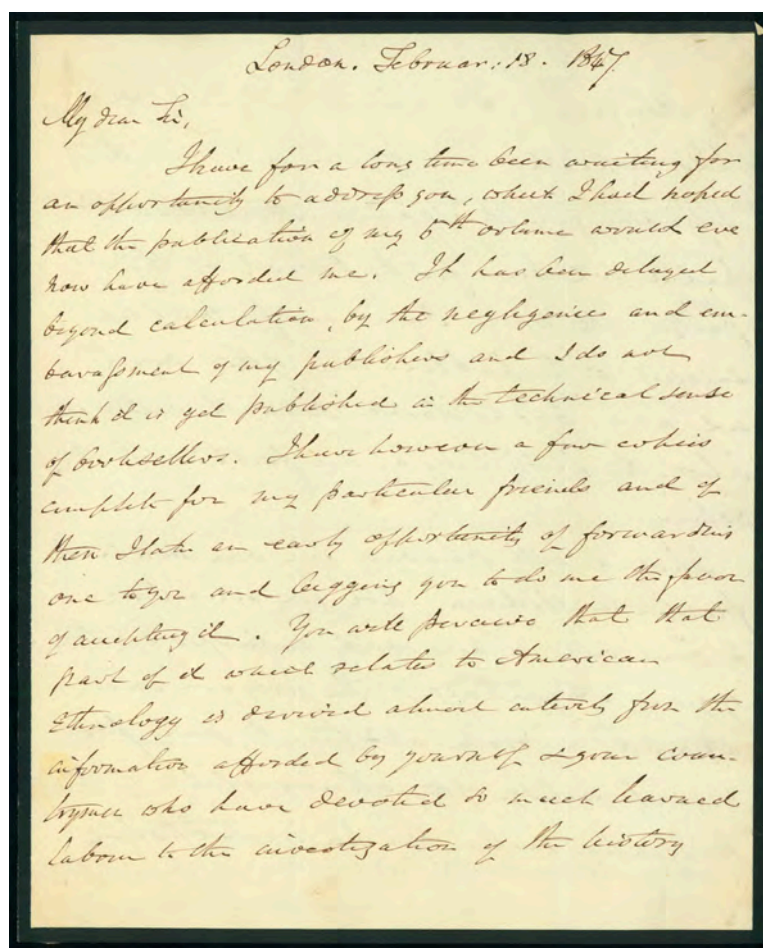 London. Februar: 18. 1847.
My dear Sir,
I have for a long time been waiting for
an opportunity to address you, which I had hoped
that the publication of my 5th volume would ere
now have afforded me. It has been delayed
beyond calculation, by the negligence and em-
barassment of my publishers and I do not
think it is yet published in the technical sense
of booksellers. I have however a few copies
complete for my particular friends and of
them I take an early opportunity of forwarding
one to you and begging you to do me the favor
of accepting it. You will perceive that that
part of it which relates to American
Ethnology is derived almost entirely from the
information afforded by yourself & your coun-
trymen who have devoted so much learned
labour to the investigation of the history